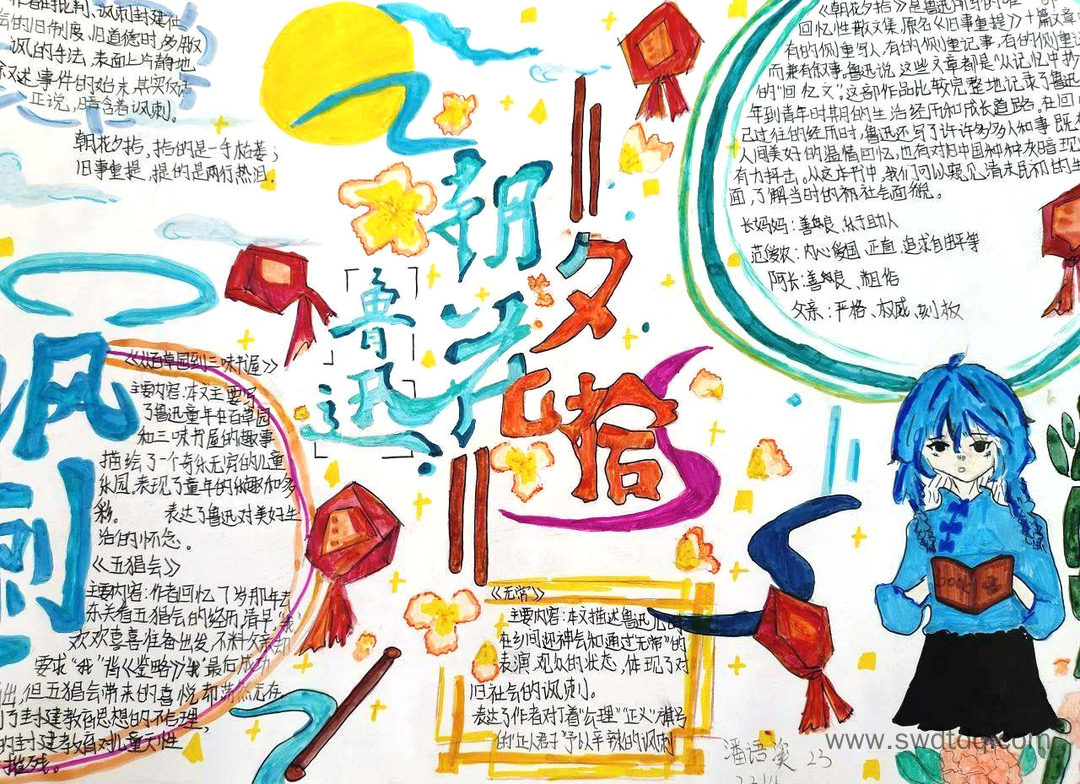 者的批判、讽刺封建社
会的旧制度、旧道德时,多用反
讽的手法,表面上冷静地
叙述事件的始末,其实反话
正说,暗含着讽刺。
朝花夕拾,拾的是一手枯萎;
旧事重提,提的是两行热泪。
朝花夕拾
鲁迅
讽刺
《朝花夕拾》是鲁迅所写的唯一
回忆性散文集,原名《旧事重提》十篇文章
有的侧重写人,有的侧重记事,有的侧重议
而兼有叙事。鲁迅说,这些文章都是“从记忆中抄
的“回忆文”。这部作品比较完整地记录了鲁迅
年到青年时期的生活经历和成长道路。在回
己过往的经历时,鲁迅还写了许许多多人和事,既有
人间美好的温情回忆,也有对旧中国种种灰暗现
有力抨击。从这本书中,我们可以窥见清末民初的生
面,了解当时的社会面貌。
长妈妈:善良,乐于助人
范爱农:内心爱国、正直、追求自由平等
阿长:善良、粗俗
父亲:严格、权威、刻板
《从百草园到三味书屋》
主要内容:本文主要写
了鲁迅童年在百草园
和三味书屋的趣事
描绘了一个奇乐无穷的儿童
乐园,表现了童年的乐趣和多
彩。 表达了鲁迅对美好生
活的怀念。
《五猖会》
主要内容:作者回忆了7岁那年去
东关看五猖会的经历,清早,
欢欢喜喜准备出发,不料父亲却
要求“我”背《鉴略》“我”最后成功
出,但五猖会带来的喜悦却荡然无存
了封建教育思想的不合理,
的封建教育对儿童天性
摧残。
《无常》
主要内容:本文描述鲁迅儿时
在乡间迎神会和通过“无常”的
表演,观众的状态,体现了对
旧社会的讽刺。
表达了作者对打着“公理”“正义”旗号
的“正人君子”予以辛辣的讽刺
潘语溪 23
www.swdtdq.com